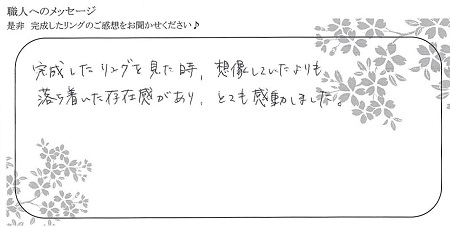 職人へのメッセージ
是非 完成したリングのご感想をお聞かせください♪
完成したリングを見た時、想像していたよりも
落ち着いた存在感があり、とても感動しました。